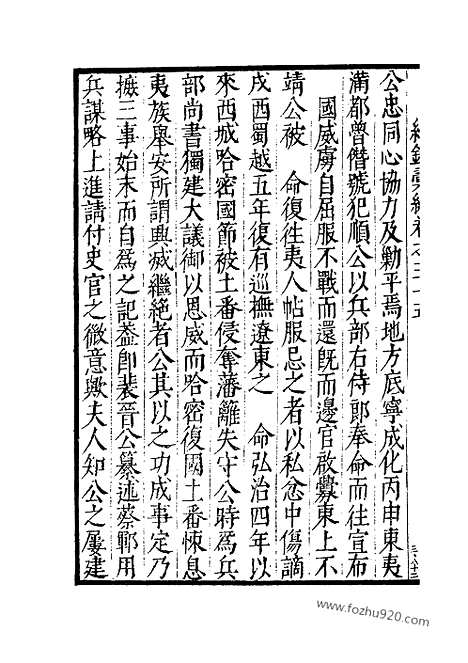 公忠同心協力及勦平焉地方底寧成化丙申東夷
滿都魯僭號犯順公以兵部右侍郎奉命而往宣布
國威虜自屈服不戰而還既而邊官啟釁東上不
靖公被　命復往夷人帖服忌之者以私忿中傷謫
戍西蜀越五年復有巡撫遼東之　命弘治四年以
來西城哈密國節被土番侵奪藩籬失守公時爲兵
部尚書獨建大議御以恩威而哈密復國土番悚息
夷族舉安所謂興滅繼絕者公其以之功成事定乃
摭三事始末而自爲之記葢卽裴晉公纂述蔡鄆用
兵謀略上進請付史官之微意歟夫人知公之屢建
www.fozhu920.com